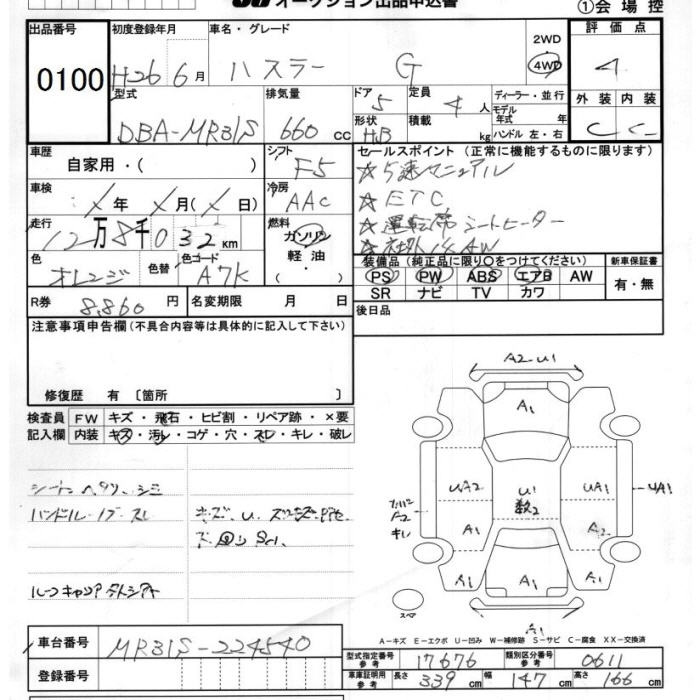 オークション出品申込書 ①会場控
出品番号 初度登録年月 車名・グレード 2WD 評価点
0100 H26 6月 ハスラー G 4WD 4
型式 排気量 ドア 5 定員 4人 ディーラー・並行 外装 内装
DBA-MR31S 660 cc 形状 HB 積載 kg モデル年式 年 ハンドル 左・右 C C-
車歴 自家用・( ) シフト F5 セールスポイント (正常に機能するものに限ります)
☆5速マニュアル
車検 X年 X月(X日) 冷房 AAC ☆ETC
走行 12万8千032km 燃料 ガソリン 軽油・ ☆運転席シートヒーター
☆社外15AW
色 オレンジ 色替 色コード A7K 装備品 (純正品に限り〇をつけてください) 新車保証書
PS PW ABS エアB AW 有・無
SR ナビ TV カワ
R券 8,860円 名変期限 月 日 後日品
注意事項申告欄(不具合内容等は具体的に記入して下さい)
修復歴 有 〔箇所 〕
検査員 FW キズ・飛石・ヒビ割・リペア跡・×要
記入欄 内装 キズ・汚レ・コゲ・穴・スレ・キレ・破レ
シートヘタリ、シミ
ハンドル・ノブ・スレ
キズ、U、
ルーフキャリア
A2-U1
A1
UA2 U1 UA1 UA1
数2
A2
キレ
A1 A2
A1 A1 A1
スペア
A1
A-キズ E-エクボ U-凹み W-補修跡 S-サビ C-腐食 XX-交換済
車台番号 MR31S-224540
登録番号
型式指定番号 参考 17676 類別区分番号 参考 0611
車庫証明用 参考 長さ 339cm 幅 147cm 高さ 166cm